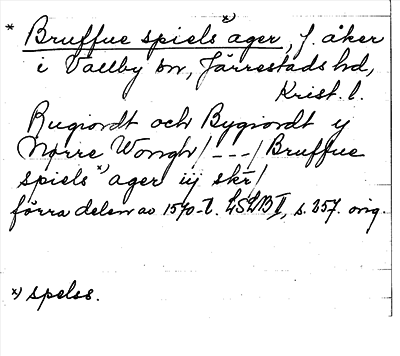 * Bruffue spiels *) ager, f. åker
i Vallby sn, Järrestads hd,
Krist. l.
Rugiordt och Bygiordt y
Nørre Wongh / --- / Bruffue
spiels *) ager iij skr /
förra delen av 1570-t. LSLB II, s. 257. orig.
*) spelss.